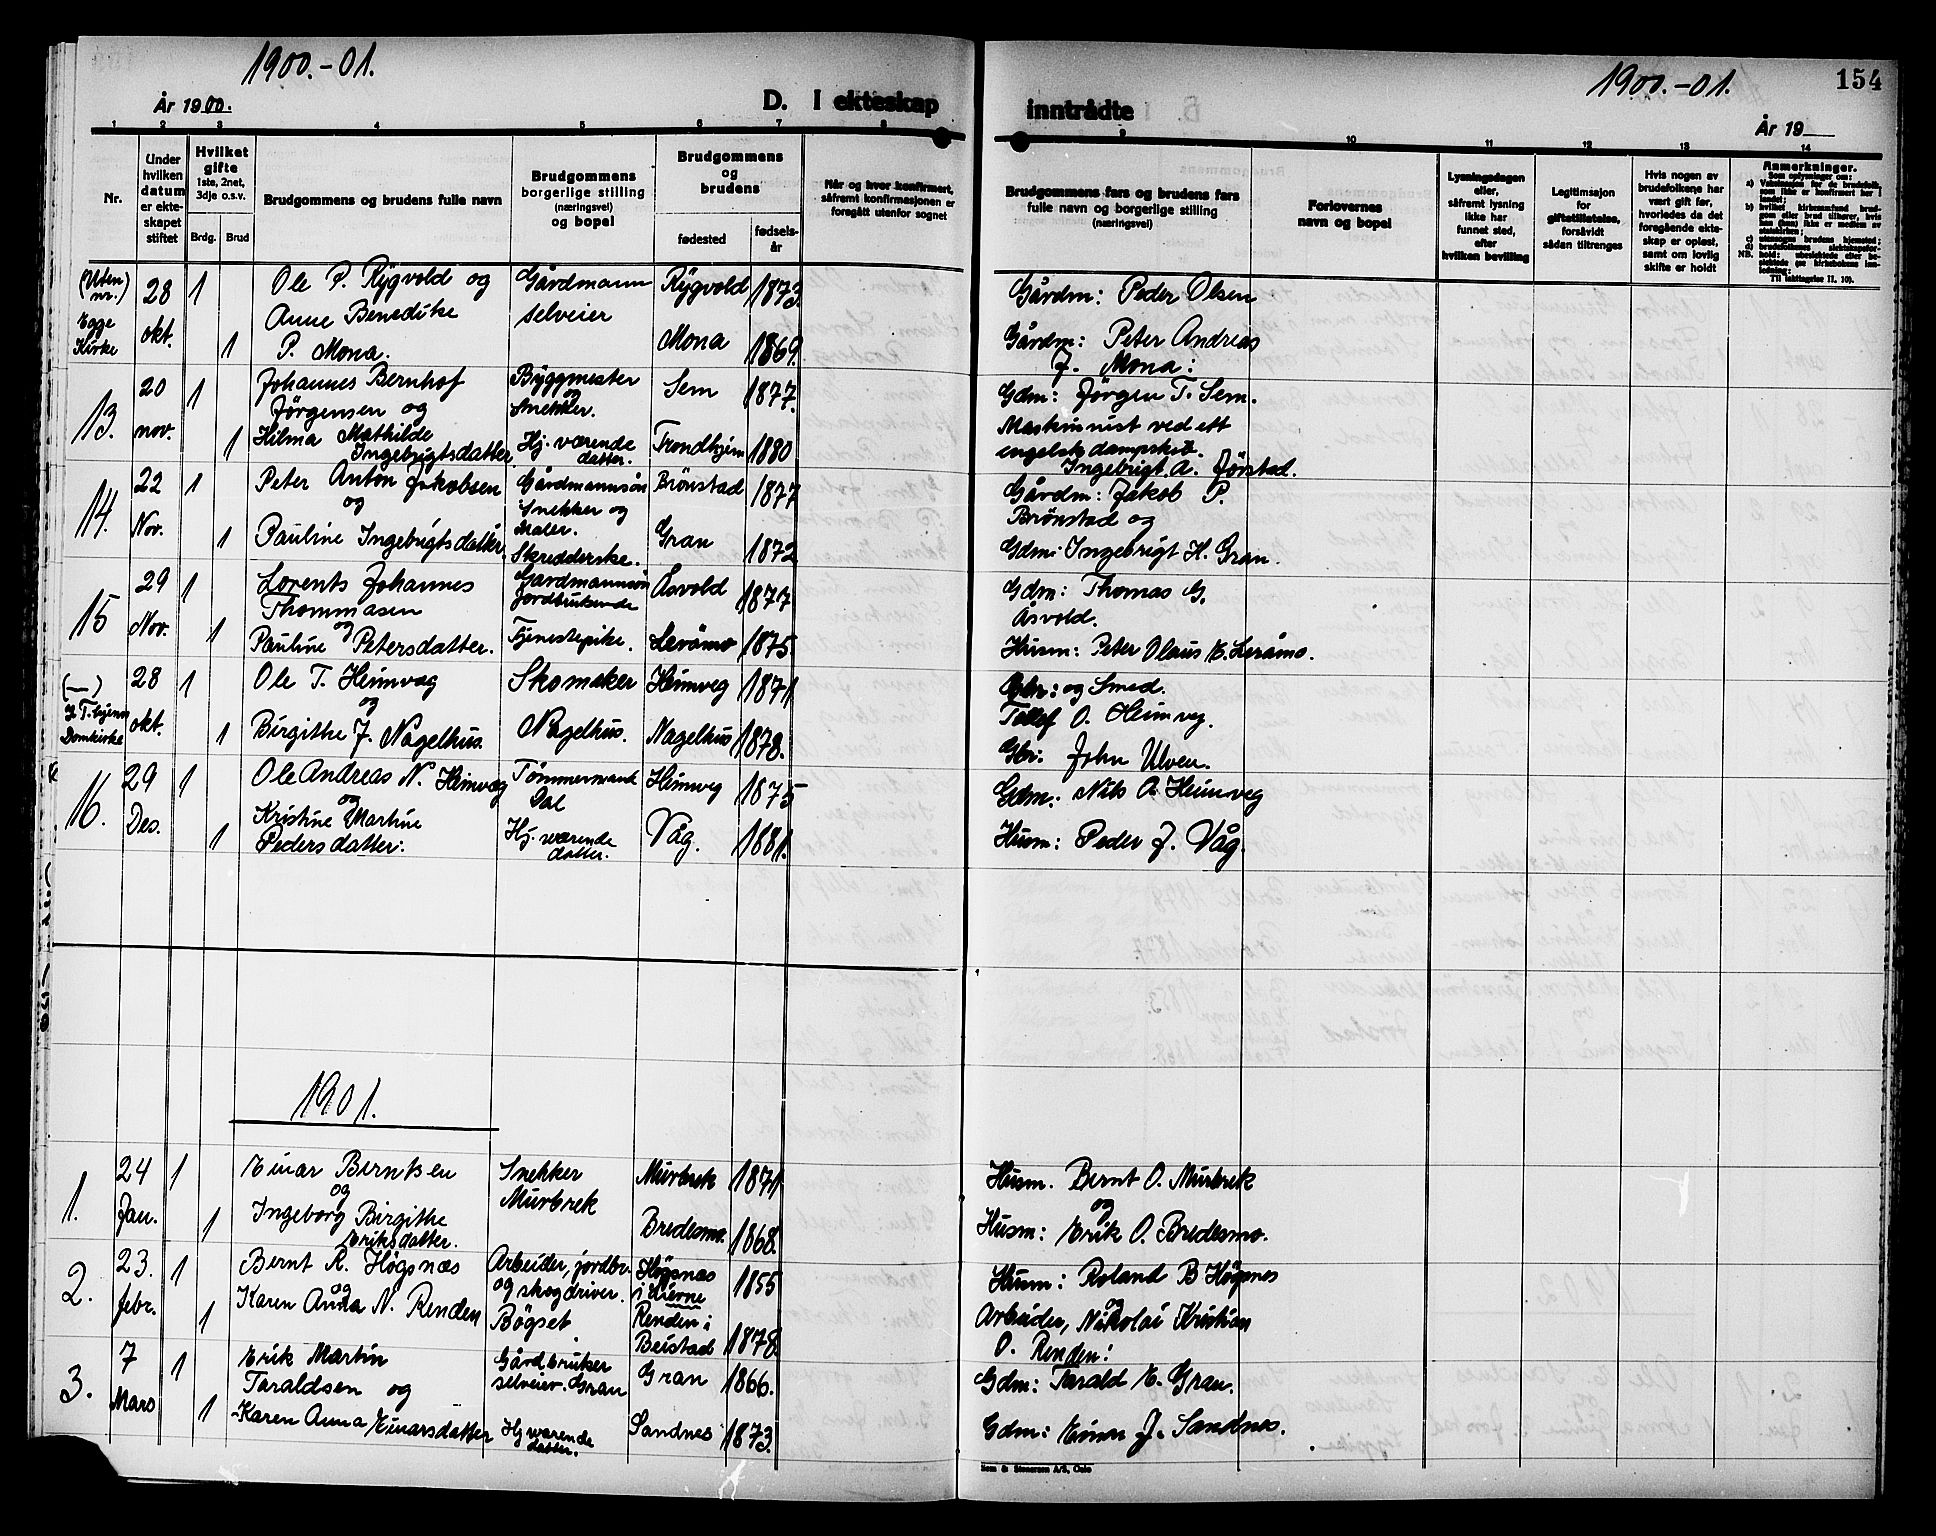 1900.-01.
1900.-01.
154
År 1900.
D. I ekteskap
inntrådte
År 19
1 2 3 4 5 6 7 8
9 10 11 12 13 14
Nr.
Under hvilken datum er ekteskapet stiftet
Hvilket gifte
1ste, 2net, 3dje o.s.v.
Brdg. Brud
Brudgommens og brudens fulle navn
Brudgommens borgerlige stilling (næringsvei) og bopel
Brudgommens og brudens
fødested
fødselsår
Når og hvor konfirmert, såfremt konfirmasjonen er foregått utenfor sognet
Brudgommens fars og brudens fars fulle navn og borgerlige stilling (næringsvei)
Forlovernes navn og bopel
Lysningsdagen eller, såfremt lysning ikke har funnet sted, efter hvilken bevilling
Legitimasjon for giftetillatelse, forsåvidt sådan tiltrenges
Hvis nogen av brudefolkene har vært gift før, hvorledes da det foregående ekteskap er opløst, samt om lovlig skifte er holdt
Anmerkninger.
Som oplysninger om:
Til iakttagelse II, 10).
(Uten nr.) Egge Kirke
28 okt.
1
Ole P. Rygvold og
Gårdmann selveier
Rygvold
1873.
Gårdm: Peder Olsen
1
Anne Benedikte P. Mona.
Mona
1869.
Gårdm: Peter Andreas J. Mona:
13.
20 nov.
1
Johannes Bernhof Jørgensen og
Byggmester og Snekker.
Sem
1877.
Gdm: Jörgen T. Sem.
1
Hilma Mathilde Ingebrigtsdatter
Hj. værende datter.
Trondhjem
1880
Maskinnist ved ett engelsk dampskib. Ingebrigt A. Jørstad.
14.
22 Nov.
1
Peter Anton Jakobsen og
Gårdmannsön Snekker og Maler.
Brönstad
1877
Gårdm: Jakob P. Brönstad og
1
Pauline Ingebrigtsdatter.
Skredderske.
Gran
1872
Gdm: Ingebrigt H. Gran.
15
29 Nov.
1
Lorents Johannes Thommasen og
Gårdmannsön Jordbrukende
Åsvold
1877
Gdm: Thomas G. Åsvold.
1
Pauline Petersdatter.
Tjenestepike.
Leråmo
1875.
Husm: Peter Olaus E. Leråmo.
(—) I T.hjems Domkirke
28 okt.
1
Ole T. Heimveg og
Skomaker
Heimveg
1871
Gbr: og Smed. Tollef O. Heimveg.
1
Birgithe J. Nagelhus.
Nagelhus.
Nagelhus
1878.
Gbr: John Ulven.
16.
29 Des.
1
Ole Andreas N. Heimveg og
Tømmermann Dal
Heimveg
1875
Gdm: Nils A. Heimveg
1
Kristine Martine Pedersdatter.
Hj. værende datter.
Våg.
1881.
Husm: Peder J. Våg.
1901.
1.
24 Jan.
1
Einar Berntsen og
Snekker Murbrek
Murbrek
1871
Husm. Bernt O. Murbrek og
1
Ingeborg Birgithe Eriksdatter.
Bredesmo.
1868.
Husm: Erik O. Bredesmo.
2.
23. febr.
1
Bernt R. Høgsnæs og
Arbeider, jordbr. og skogdriver. Bøgset
Høgsnæs i Lierne
1855
Husm: Roland B Høgsnes og
1
Karen Anna N. Renden
Renden i Beistad
1878.
Arbeider, Nikolai Kristian O. Renden:
3.
7 Mars
1
Erik Martin Taraldsen og
Gårdbruker selveier. Gran
Gran
1866.
Gdm: Tarald E. Gran.
1
Karen Anna Einarsdatter
Hj værende datter.
Sandnes
1873.
Gdm: Einar J. Sandnes.
Sem & Stenersen A/S, Oslo